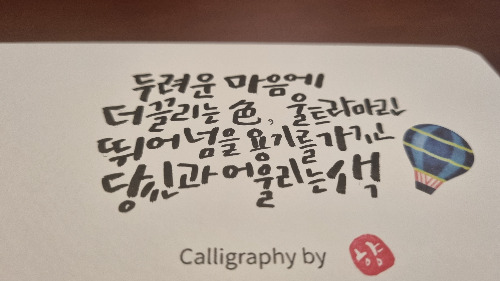 두려운 마음에
더 끌리는 色, 울트라마린
뛰어넘을 용기를 가진
당신과 어울리는 색
Calligraphy by